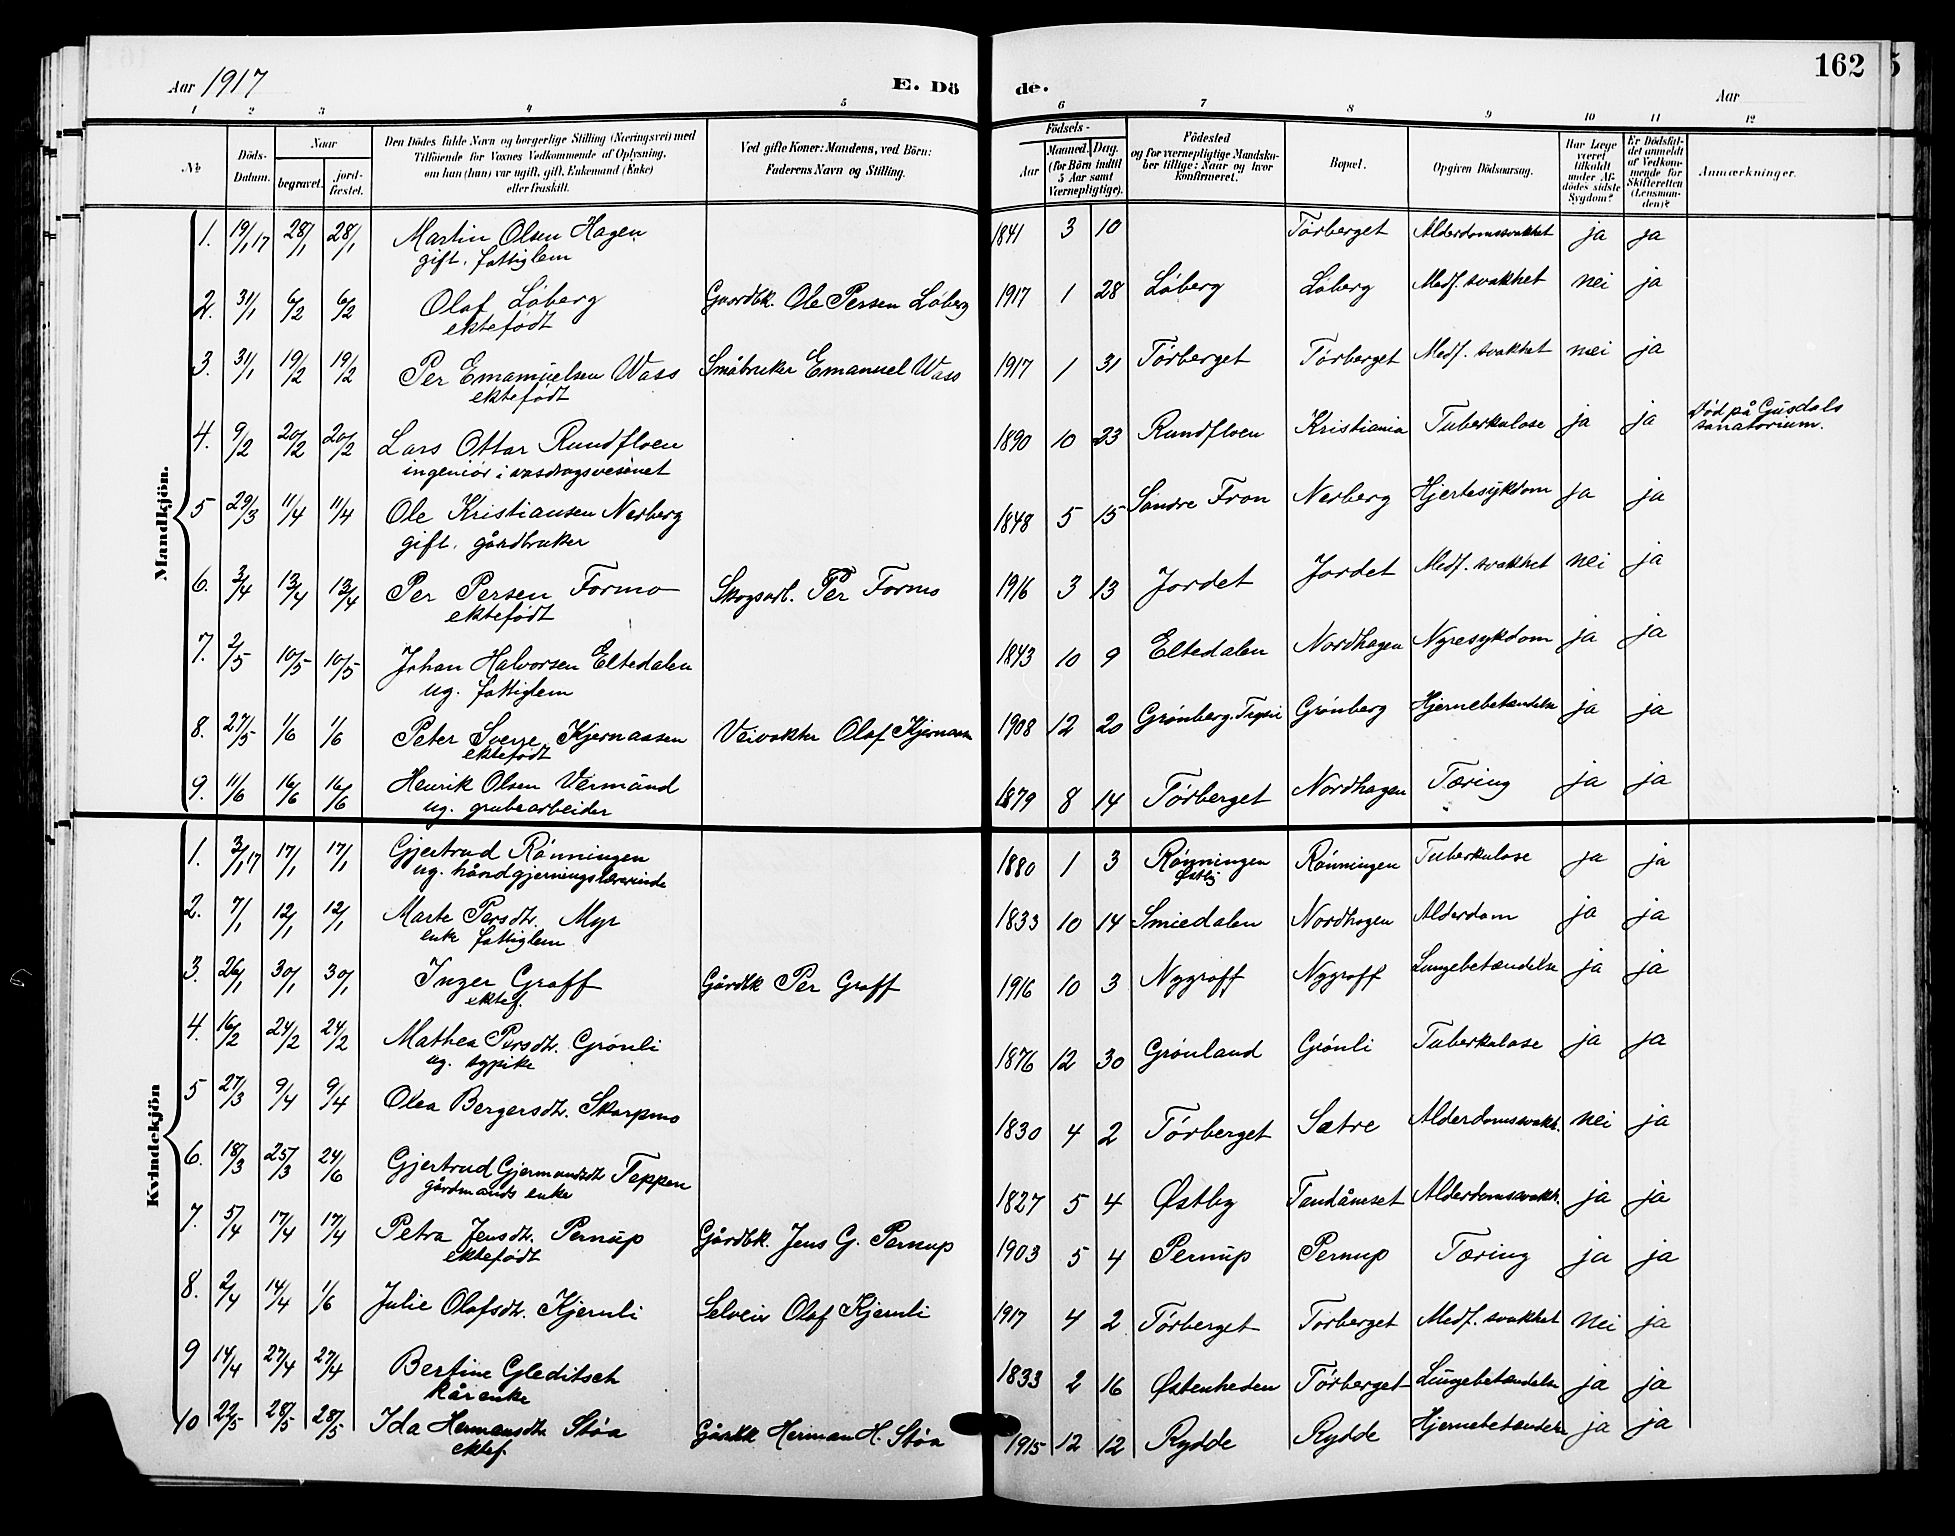 162
Aar 1917 E. Dö de. Aar
1 2 3 4 5 6 7 8 9 10 11 12
No. Döds-Datum. Naar begravet. jordfæstet. Den Dödes fulde Navn og borgerlige Stilling (Næringsvei) med Tilföiende for Voxnes Vedkommende af Oplysning, om han (hun) var ugift, gift, Enkemand (Enke) eller fraskilt. Ved gifte Koner: Mandens, ved Börn: Faderens Navn og Stilling. Födsels- Aar Maaned. Dag. (for Börn indtil 5 Aar samt Værnepligtige). Födested og for værnepligtige Mandskaber tillige: Naar og hvor Konfirmeret. Bopæl. Opgiven Dödsaarsag. Har Læge været tilkaldt under Afdödes sidste Sygdom? Er Dödsfaldet anmeldt af Vedkommende for Skifteretten (Lensmanden)? Anmærkninger.
Mandkjön.
1. 19/1 17 28/1 28/1 Martin Olsen Hagen 1841 3 10 Törberget Alderdomssvakhet ja ja
gift. fattiglem
2. 31/1 6/2 6/2 Olaf Löberg Gaardbk. Ole Persen Löberg 1917 1 28 Löberg Löberg Medf. svakhet nei ja
ektefödt
3. 31/1 19/2 19/2 Per Emamuelsen Wass Småbruker Emanuel Wass 1917 1 31 Törberget Törberget Medf. svakhet nei ja
ektefödt
4. 9/2 20/2 20/2 Lars Ottar Rundfloen 1890 10 23 Rundfloen Kristiania Tuberkulose ja ja Död på Gusdals
sanatorium.
ingeniör i vasdragsvesenet
5 29/3 11/4 11/4 Ole Kristiansen Nerberg 1848 5 15 Söndre Fron Nerberg Hjertesykdom ja ja
gift. gårdbruker
6. 3/4 13/4 13/4 Per Persen Formo Skogsarb. Per Formo 1916 3 13 Jordet Jordet Medf. svakhet nei ja
ektefödt
7. 2/5 10/5 10/5 Johan Halvorsen Eltedalen 1843 10 9 Eltedalen Nordhagen Nyresykdom ja ja
ug. fattiglem
8. 27/5 1/6 1/6 Peter Sverre Kjernaasen Veivokter Olaf Kjernaasen 1908 12 20 Grönberg. Trysil Grönberg Hjernebetændelse ja ja
ektefödt
9. 11/6 16/6 16/6 Henrik Olsen Vermünd 1879 8 14 Törberget Nordhagen Tæring ja ja
ug. grubearbeider
Kvindekjön
1. 3/1 17 17/1 17/1 Gjertrud Rönningen 1880 1 3 Rönningen Rönningen Tuberkulose ja ja
Østby
ug. håndgjerningslærerinde
2. 7/1 12/1 12/1 Marte Persdtr. Myr 1833 10 14 Smiedalen Nordhagen Alderdom ja ja
enke fattiglem
3. 26/1 30/1 30/1 Inger Graff Gårdbk Per Graff 1916 10 3 Nygraff Nygraff Lungebetændelse ja ja
ektef.
4. 16/2 24/2 24/2 Mathea Persdtr. Grönli 1876 12 30 Grönland Grönli Tuberkulose ja ja
ug. sypike
5 27/3 9/4 9/4 Olea Bergersdtr. Skarpmo 1830 4 2 Törberget Sætre Alderdomssvakh. nei ja
6. 18/3 25/3 24/6 Gjertrud Gjermundsdtr Teppen 1827 5 4 Østby Tandåmset Alderdomssvakh. ja ja
gårdmands enke
7. 5/4 17/4 17/4 Petra Jensdtr. Pernup Gårdbk. Jens G. Pernup 1903 5 4 Pernup Pernup Tæring ja ja
ektefödt
8. 2/4 14/4 1/6 Julie Olafsdtr. Kjernli Selveir Olaf Kjernli 1917 4 2 Törberget Törberget Medf. svakhet nei ja
9 14/4 27/4 27/4 Bertine Gleditsch 1833 2 16 Østenheden Törberget Lungebetændelse ja ja
kårenke
10 22/5 28/5 28/5 Ida Hermansdtr Stöa Gårdbk Herman H. Stöa 1915 12 12 Rydde Rydde Hjernebetændelse ja ja
ektef